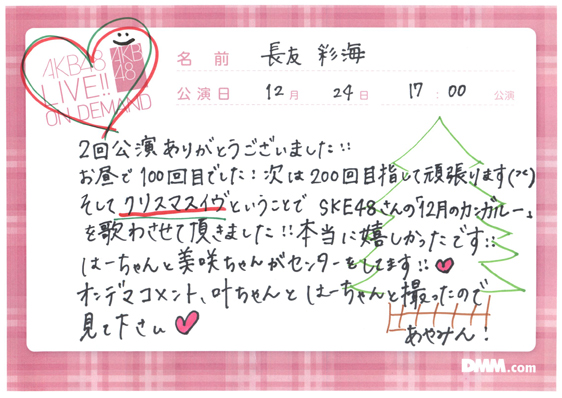 AKB48
LIVE!!
ON DEMAND
AKB
48
名前 長友 彩海
公演日 12月 24日 17:00 公演
2回公演ありがとうございました!!
お昼で100回目でした!次は200回目指して頑張ります(^^)
そしてクリスマスイヴということで SKE48さんの「12月のカンガルー」
を歌わさせて頂きました!!本当に嬉しかったです!!
はーちゃんと美咲ちゃんがセンターをしてます!!
オンデマコメント、叶ちゃんとはーちゃんと撮ったので
見て下さい
あやみん!
DMM.com